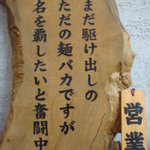 まだ駆け出しの
ただの麺バカですが
名を覇したいと奮闘中
営業